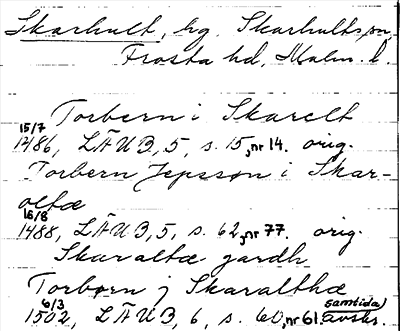 Skarhult, hg. Skarhults sn,
Frosta hd, Malm. l.
Torbern i Skarelt
15/7
1486, LÄUB, 5, s. 15, nr 14. orig.
Torbern Jepssøn i Skar-
oltæ
16/8
1488, LÄUB, 5, s. 62, nr 77. orig.
Skaraltæ gardh
Torbørn j Skaralthæ
6/3 samtida
1502, LÄUB, 6, s. 60, nr 61. avskr.